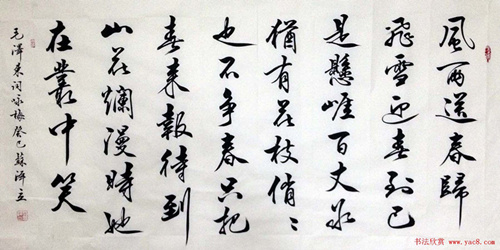 風雨送春歸
飛雪迎春到已
是懸崖百丈冰
猶有花枝俏〻
也不争春只把
春来報待到
山花爛漫時她
在叢中笑
毛澤東词咏梅癸巳蘇澤立
书法欣赏
www.yac8.com